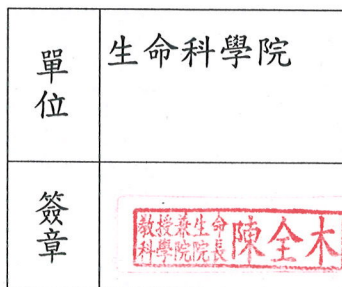 單位
生命科學院
簽章
教授兼生命
科學院院長
陳全木